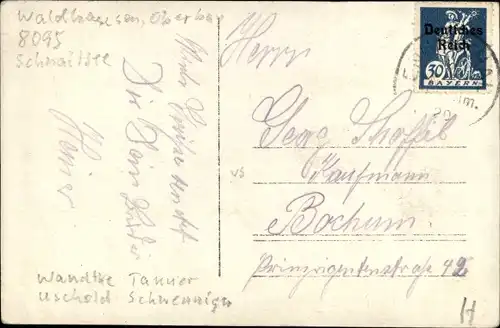 Waldhausen, Oberbay
8095
Schnaitsee
Herrn
Georg Stoffel
Kaufmann
Bochum.
Prinzregentenstraße 42
Dir Dein Bruder
Heiner
Deutsches
Reich
30
BAYERN
VS
Wandtke Tanner
Uschold Schwennigke
H